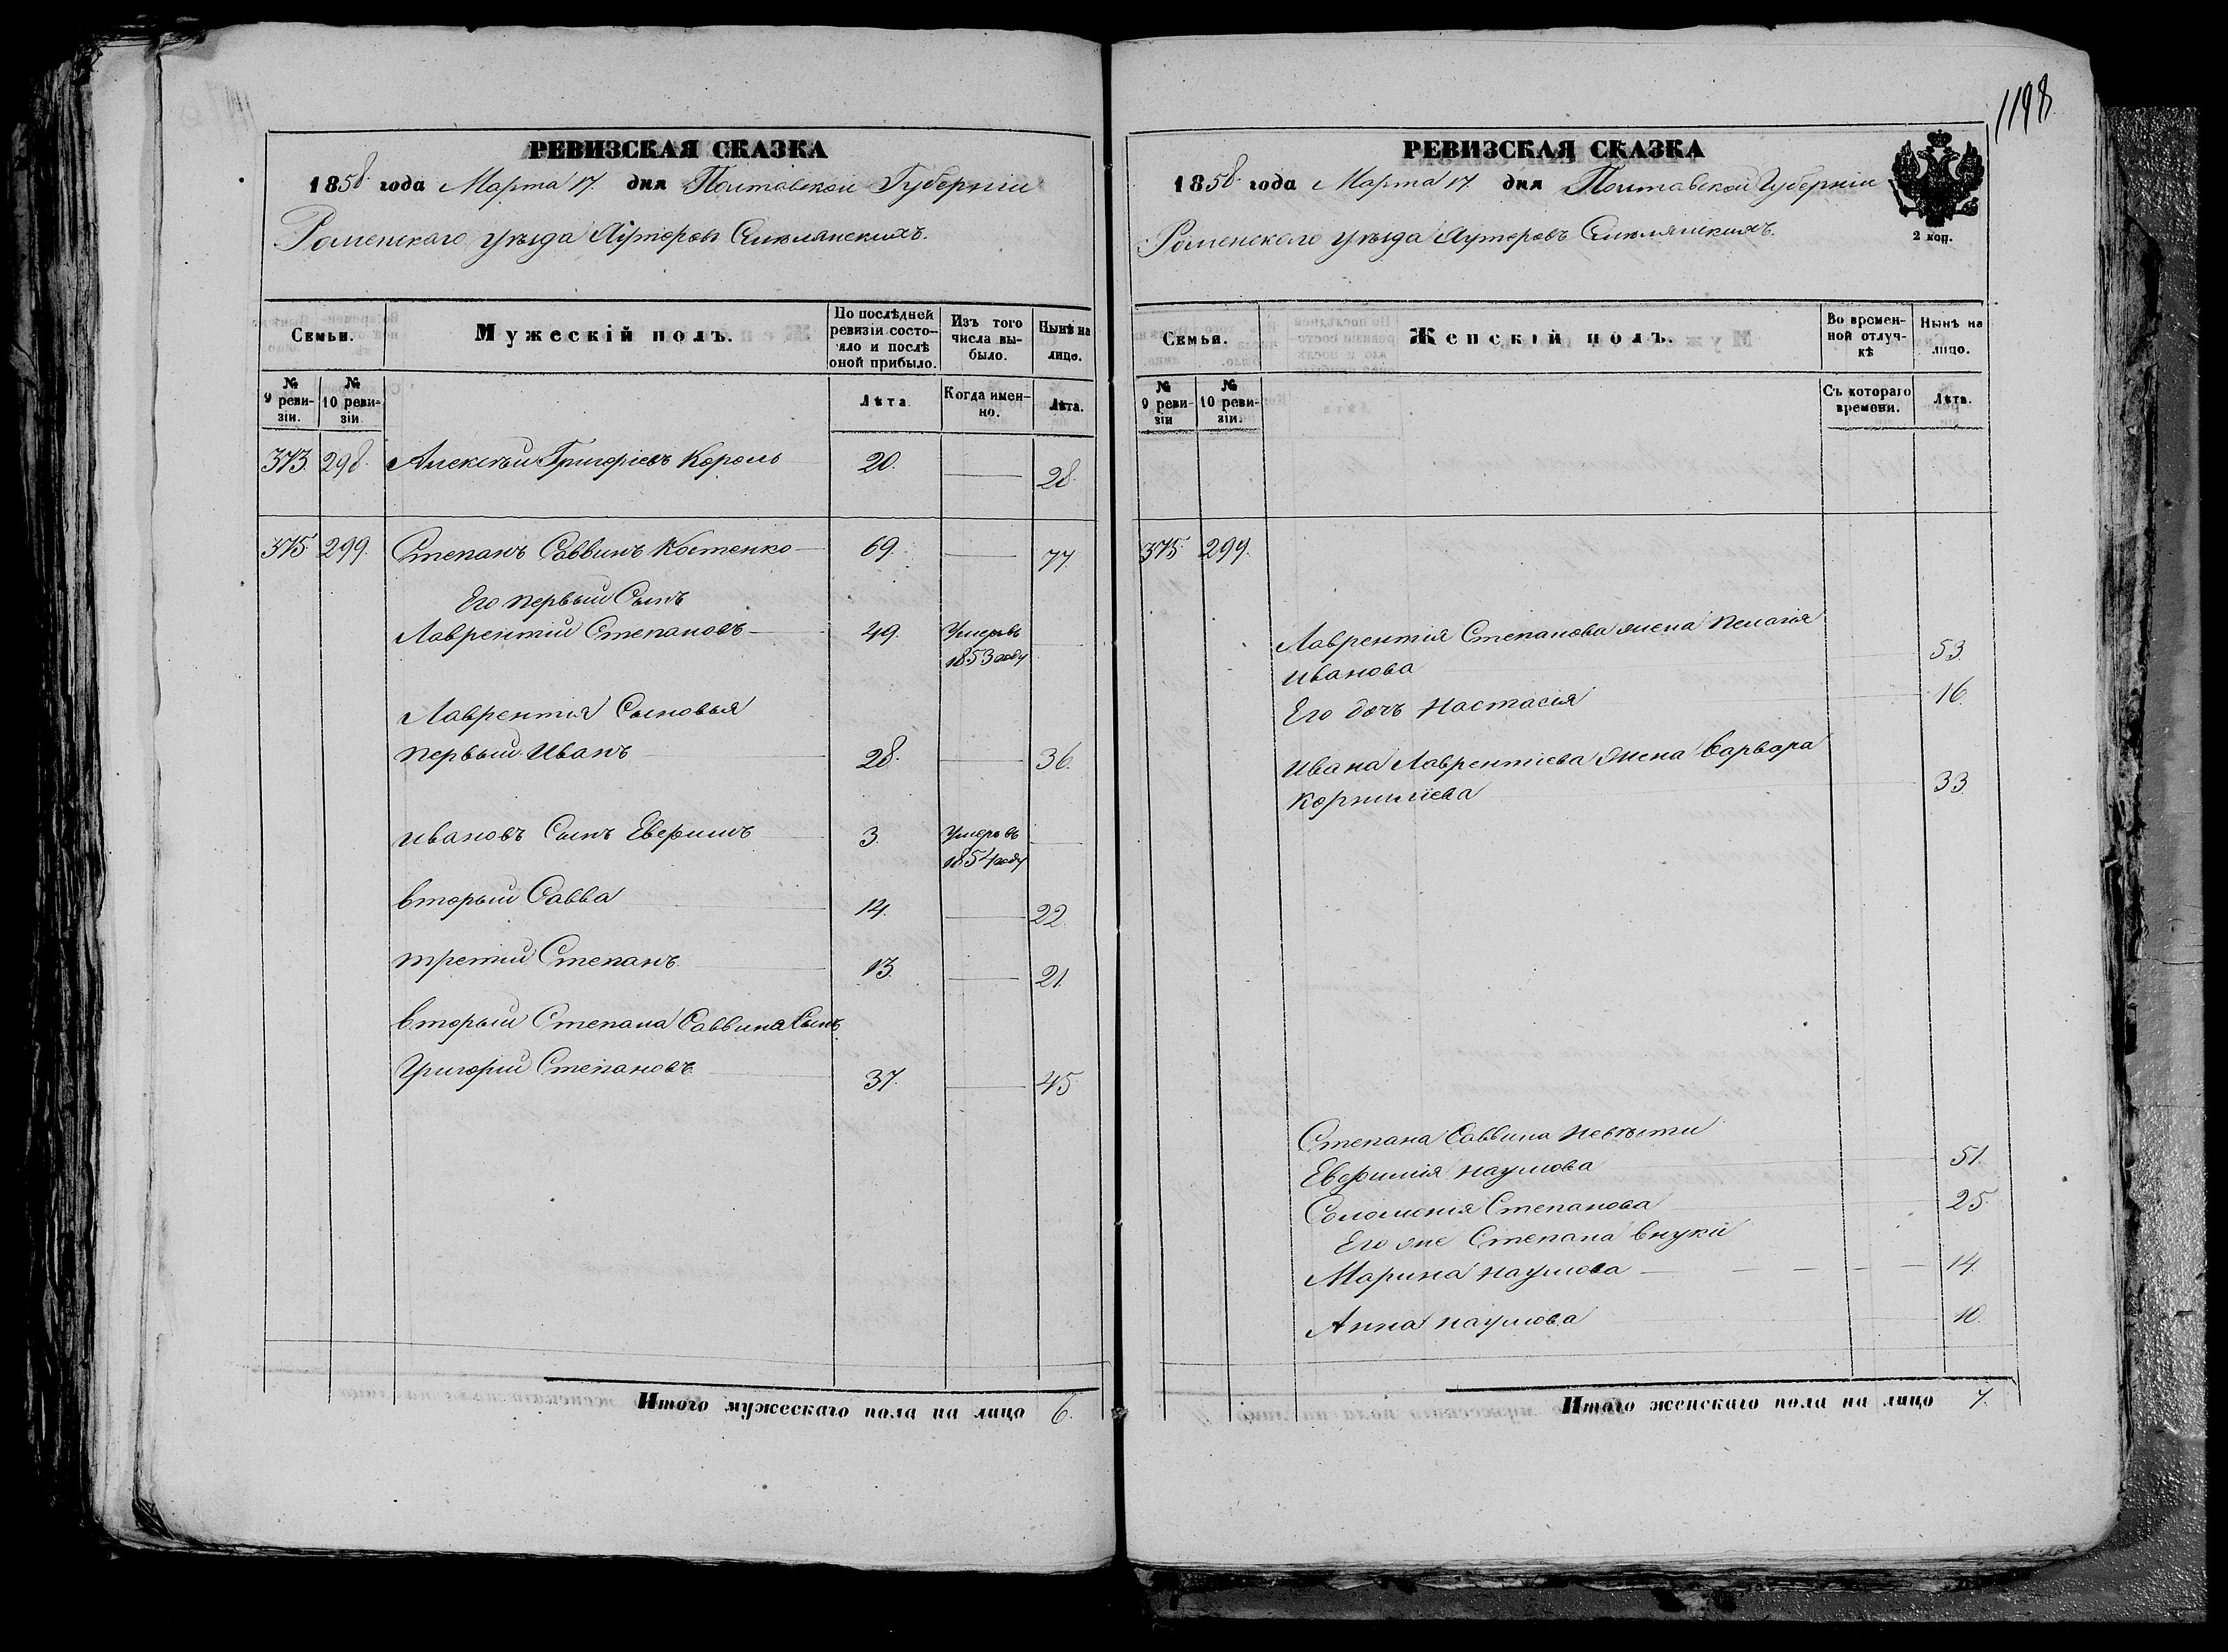 1198
РЕВИЗСКАЯ СКАЗКА
1858 года Марта 17. дня Полтавской Губернiи
Роменского уѣзда Хуторовъ Смѣлянскихъ.
Семьи.
Мужескiй полъ.
По послѣдней ревизiи состо-яло и послѣ оной прибыло.
Изъ того числа вы-было.
Нынѣ на лицо.
№ 9 реви-зiи.
№ 10 реви-зiи
Лѣта
Когда имен-но.
Лѣта.
373. 298. Алексѣй Григорiевъ Король 20. 28.
375 299. Степанъ Саввинъ Костенко 69. 77.
Его первый Сынъ
Лаврентiй Степановъ 49. Умеръ въ
1853 году
Лаврентiя Сыновья
первый Иванъ 28. 36.
Ивановъ Сынъ Евфимъ 3. Умеръ въ
1854 году
вторый Савва 14. 22.
третiй Степанъ 13. 21.
вторый Степана Саввина Сынъ
Григорiй Степановъ 37. 45
Итого мужескаго пола на лицо 6.
РЕВИЗСКАЯ СКАЗКА
1858 года Марта 17. дня Полтавской Губернiи
Роменского уѣзда Хуторовъ Смѣлянскихъ.
2 коп.
Семьи.
Женскiй полъ.
Во времен-ной отлуч-кѣ
Нынѣ на лицо.
№ 9 реви-зiи
№ 10 реви-зiи.
Съ котораго времени.
Лѣта.
375 299.
Лаврентiя Степанова жена Пелагiя
Иванова 53.
Его дочь Настасiя 16.
Ивана Лаврентiева жена Варвара
Корнилiева 33.
Степана Саввина невѣсти
Евфимiя Наумова 51.
Соломонiя Степанова 25.
Его же Степана внуки
Марина Наумова 14.
Анна Наумова 10.
Итого женскаго пола на лицо 7.